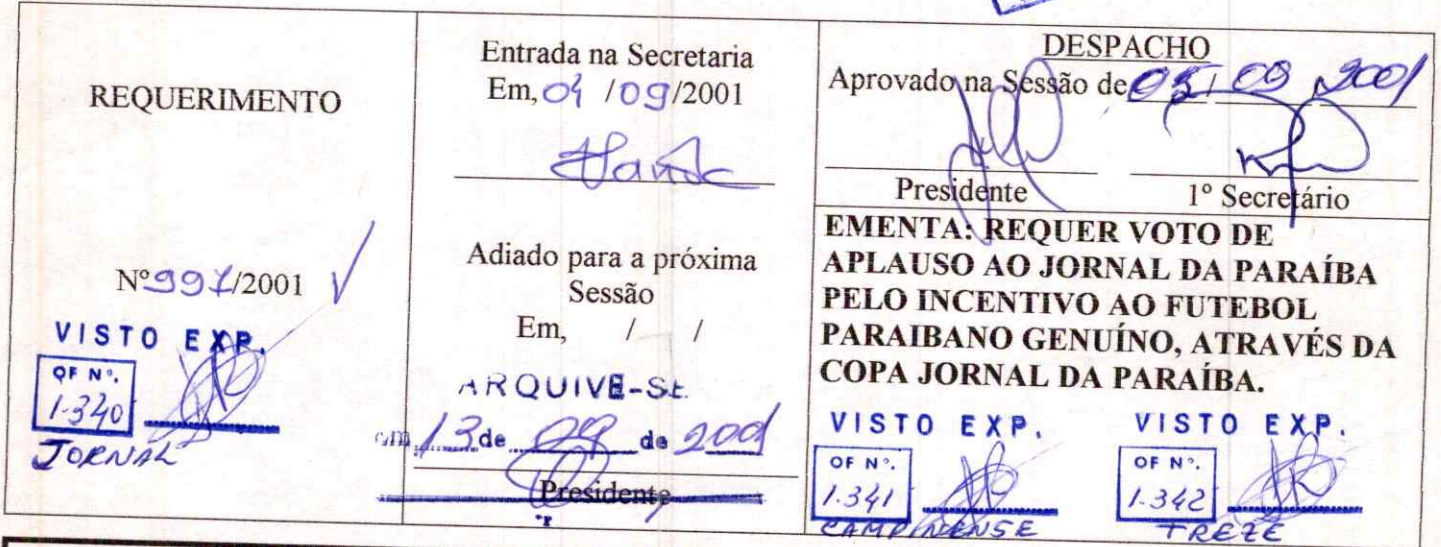 REQUERIMENTO
Nº 997/2001
VISTO EXP.
OF Nº.
1.340
JORNAL
Entrada na Secretaria
Em, 04 /09/2001
Adiado para a próxima
Sessão
Em, / /
ARQUIVE-SE
em 13 de 09 de 2001
Presidente
DESPACHO
Aprovado na Sessão de 05/ 09 /2001
Presidente 1º Secretário
EMENTA: REQUER VOTO DE
APLAUSO AO JORNAL DA PARAÍBA
PELO INCENTIVO AO FUTEBOL
PARAIBANO GENUÍNO, ATRAVÉS DA
COPA JORNAL DA PARAÍBA.
VISTO EXP. VISTO EXP.
OF Nº. OF Nº.
1.341 1.342
CAMPINENSE TREZE